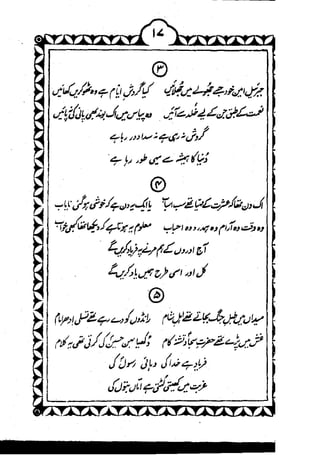 ۱۷
۳
جبریل امیں خود جسے جھولے میں جھلائیں کیا گردش ایام ہے وہ ٹھوکریں کھائیں
نعمت کے طبق جن کے لیے خلد سے آئیں وہ پیاس میں اک بوند بھی پانی کی نہ پائیں
گردش نہ رہی ہے نہ سدا دور رہا ہے
دنیا کا ہمیشہ سے یہی طور رہا ہے
۴
اک دن تھا کہ عشرت کے مہیا تھے سب اسباب یا ایک یہ دن ہے کہ خوشی ہوگئی نایاب
وہ وقت وہ آرام وہ وہ احباب معلوم یہ ہوتا ہے کہ دیکھا تھا کبھی خواب
آج اوروں کے ہم مرنے پہ فریاد کریں گے
کل اور اسی طرح ہمیں یاد کریں گے
۵
میداں میں طبل جنگ بجاتے تھے اہل شام رانڈوں کو دے رہے تھے تسلی ادھر امام
غش میں پڑے تھے حضرت سجاد تشنہ کام دکھیا بہن حسین کی کرتی تھی یہ کلام
فریاد ہے خدا کی دہائی رسول کی
غربت میں کھیتی لٹتی ہے اماں بتول کی